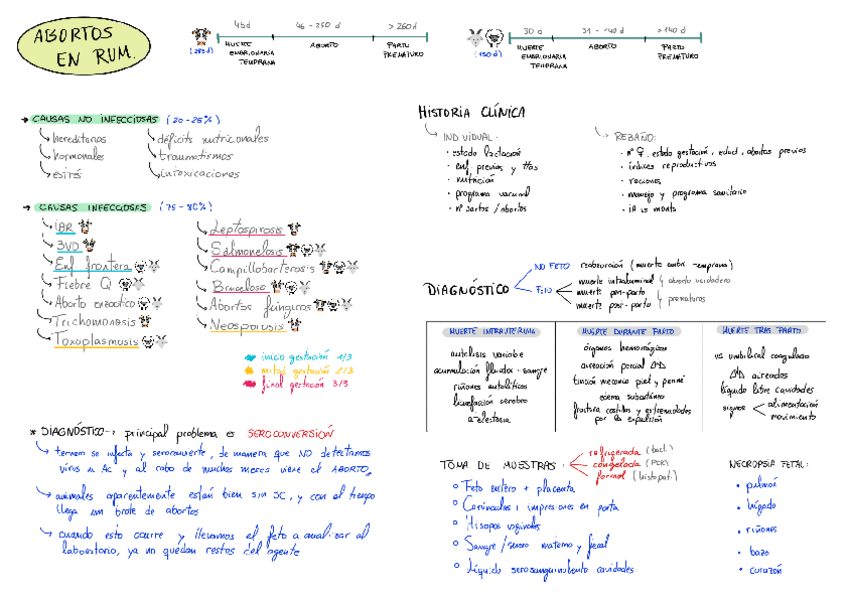 ABORTOS
EN RUM.
(285d)
45d
46 - 260 d
> 260d
MUERTE
EMBRIONARIA
TEMPRANA
ABORTO
PARTO
PREMATURO
(150d)
30 d
31 - 140 d
> 140d
MUERTE
EMBRIONARIA
TEMPRANA
ABORTO
PARTO
PREMATURO
→ CAUSAS NO INFECCIOSAS (20-25%)
hereditarias
hormonales
estrés
déficits nutricionales
traumatismos
intoxicaciones
→ CAUSAS INFECCIOSAS (75-80%)
IBR
BVD
Enf frontera
Fiebre Q
Aborto enzoótico
Trichomonosis
Toxoplasmosis
Leptospirosis
Salmonelosis
Campillobacteriosis
Brucelosis
Abortos fúngicos
Neosporosis
inicio gestación 1/3
mitad gestación 2/3
final gestación 3/3
* DIAGNÓSTICO → principal problema es SEROCONVERSIÓN
ternero se infecta y seroconvierte, de manera que NO detectamos
virus ni Ac y al cabo de muchos meses viene el ABORTO,
animales aparentemente están bien sin SC, y con el tiempo
llega un brote de abortos
cuando esto ocurre y llevamos el feto a analizar al
laboratorio, ya no quedan restos del agente
HISTORIA CLÍNICA
INDIVIDUAL:
· estado lactación
· enf. previas y ttos
· nutrición
· programa vacunal
· nº partos / abortos
REBAÑO:
· nº ♀, estado gestación, edad, abortos previos
· índices reproductivos
· raciones
· manejo y programa sanitario
· IA vs monta
DIAGNÓSTICO
NO FETO reabsorción (muerte embr. temprana)
FETO
muerte intrabdominal
muerte peri-parto
muerte post-parto
aborto verdadero
prematuros
MUERTE INTRAUTERINA
autolisis variable
acumulación fluidos - sangre
riñones autolíticos
licuefacción cerebro
atelectasia
MUERTE DURANTE PARTO
órganos hemorrágicos
aireación parcial
tinción meconio piel y
edema subcutáneo
fractura costillas y extremidades
por la expulsión
MUERTE TRAS PARTO
vs umbilical coagulado
aireados
líquido libre cavidades
signos
alimentación
movimiento
TOMA DE MUESTRAS:
refrigerada (bact.)
congelada (PCR)
formol (histopat.)
° Feto entero + placenta
° Carúnculas e impresiones en porta
° Hisopos vaginales
° Sangre / suero materno y fecal
° Líquido serosanguinolento cavidades
NECROPSIA FETAL:
• pulmón
• hígado
• riñones
• bazo
• corazón